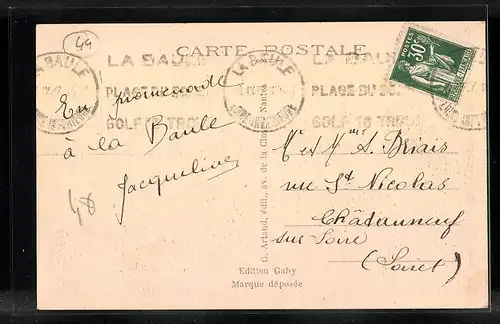 44
CARTE POSTALE
LA BAULE
PLAGE DU SOLEIL
GOLF 18 TROUS
LA BAULE
LOIRE INFERIEURE
LA BAULE
PLAGE DU
GOLF 18 TROUS
POSTES
30c
En promenade
à la Baule
Jacqueline
G. Artaud, édit., av. de la Close, Nantes
Edition Gaby
Marque déposée
Mr et Mme A. Briais
rue St Nicolas
Châteauneuf
sur Loire
(Loiret)